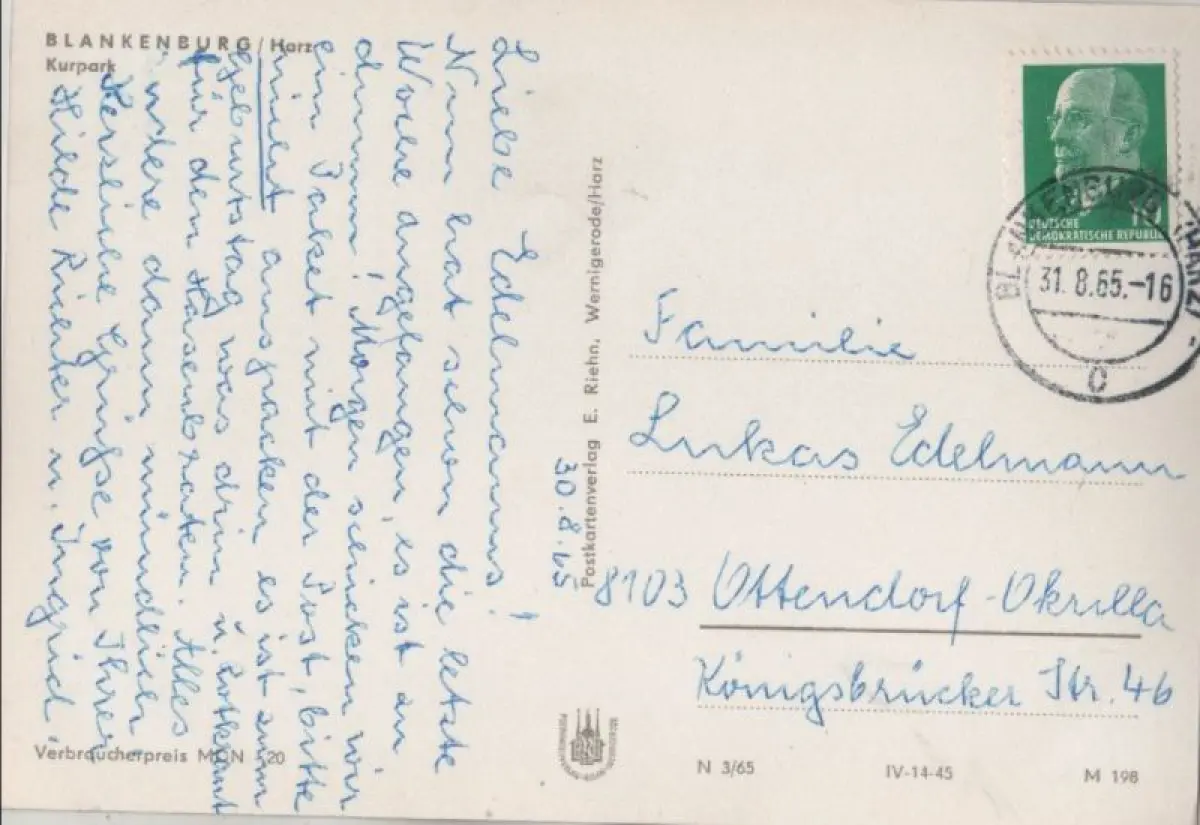 BLANKENBURG/Harz
Kurpark
Liebe Edelmanns!
Nun hat schon die letzte
Woche angefangen, es ist zu
dumm! Morgen schicken wir
ein Paket mit der Post, bitte
nicht auspacken es ist zum
Geburtstag was drin u. Rotkraut
für den Hasenbraten. Alles
andere dann mündlich.
Herzliche Grüße von Ihrer
Hilde Richter u. Ingrid.
30.8.65
Postkartenverlag E. Riehn, Wernigerode/Harz
10
DEUTSCHE
DEMOKRATISCHE REPUBLIK
BLANKENBURG (HARZ)
31.8.65.-16
c
Familie
Lukas Edelmann
8103 Ottendorf-Okrilla
Königsbrücker Str. 46
Verbraucherpreis MDN 20
N 3/65
IV-14-45
M 198